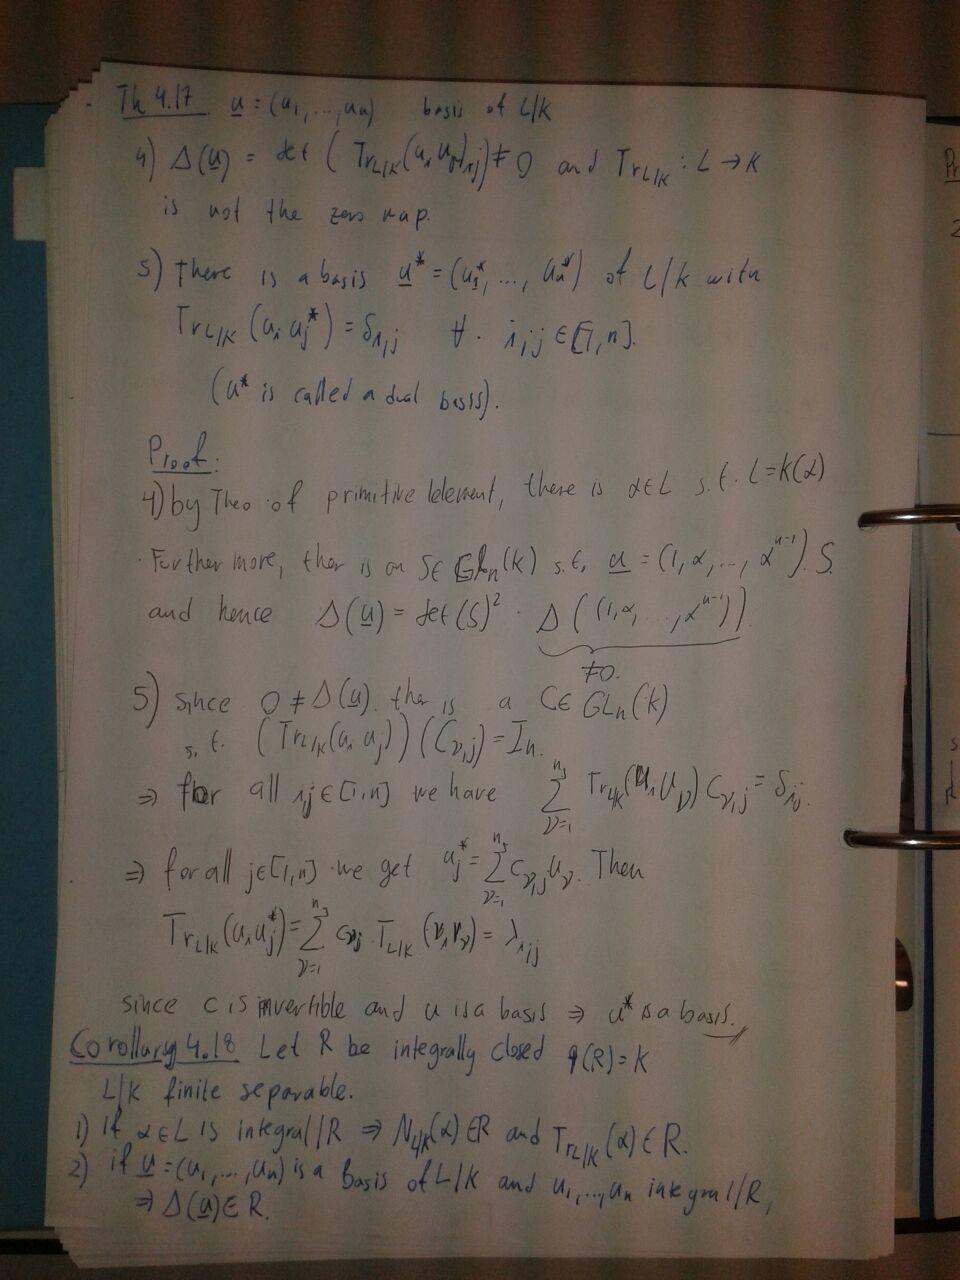 Th 4.17 u = (u₁, ..., uₙ) basis of L/K
4) Δ(u) = det (Tr_{L/K}(uᵢ uⱼ)ᵢ,ⱼ) ≠ 0 and Tr_{L/K} : L → K
is not the zero map.
5) there is a basis u* = (u₁*, ..., uₙ*) of L/K with
Tr_{L/K} (uᵢ uⱼ*) = δᵢ,ⱼ ∀ i,j ∈ [1,n].
(u* is called a dual basis).
Proof:
4) by Theo of primitive element, there is α∈L s.t. L=K(α)
Further more, ther is an S∈ GLₙ(K) s.t. u = (1, α, ..., αⁿ⁻¹) · S
and hence Δ(u) = det(S)² · Δ((1, α, ..., αⁿ⁻¹)).
≠0.
5) since 0 ≠ Δ(u) ther is a C∈ GLₙ(K)
s.t. (Tr_{L/K}(uᵢ uⱼ)) (C_{ν,j}) = Iₙ.
⇒ for all i,j∈[1,n] we have Σ_{ν=1}^{n} Tr_{L/K}(uᵢ u_ν) c_{ν,j} = δᵢⱼ.
⇒ for all j∈[1,n] we get uⱼ* = Σ_{ν=1}^{n} c_{ν,j} u_ν. Then
Tr_{L/K}(uᵢ uⱼ*) = Σ_{ν=1}^{n} c_{νj} T_{L/K} (νᵢ ν_ν) = λᵢ,ⱼ
since c is invertible and u is a basis ⇒ u* is a basis.
Corollary 4.18 Let R be integrally closed q(R)=K
L/K finite separable.
1) If α∈L is integral/R ⇒ N_{L/K}(α) ∈R and Tr_{L/K}(α) ∈ R.
2) if u = (u₁, ..., uₙ) is a basis of L/K and u₁, ..., uₙ integral/R,
⇒ Δ(u) ∈ R.